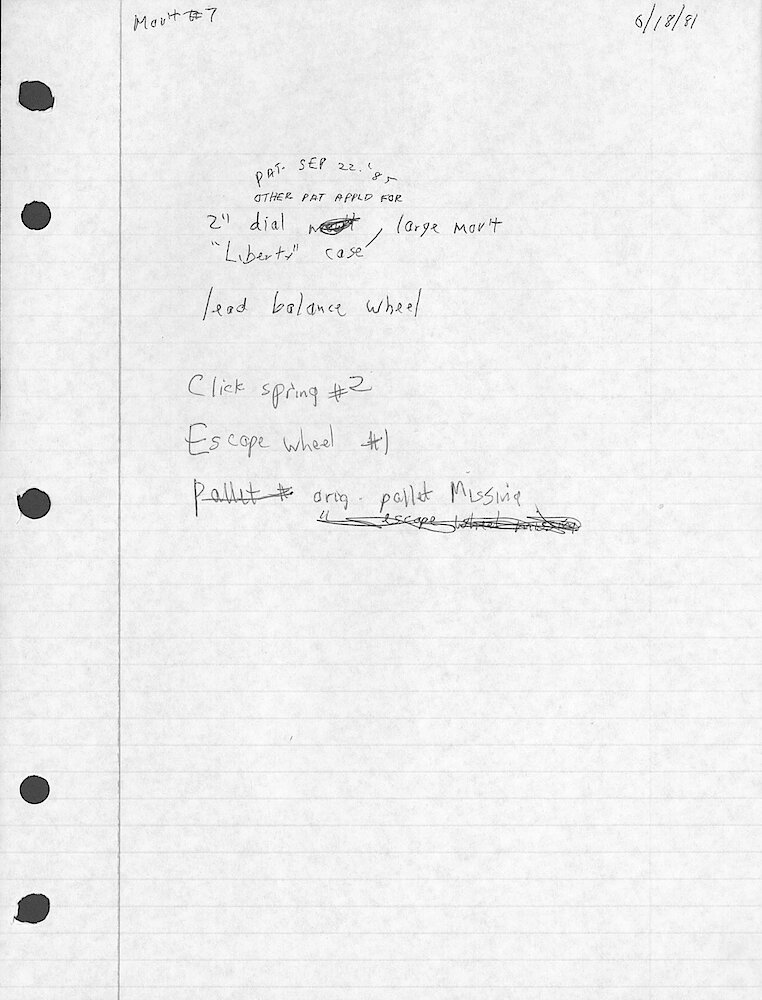 Mov't #7 6/18/81
PAT. SEP 22. '85
OTHER PAT APPLD FOR
2" dial mov't, large mov't
"Liberty" case
lead balance wheel
Click spring #2
Escape wheel #1
Pallet # orig. pallet Missing
" escape wheel missing